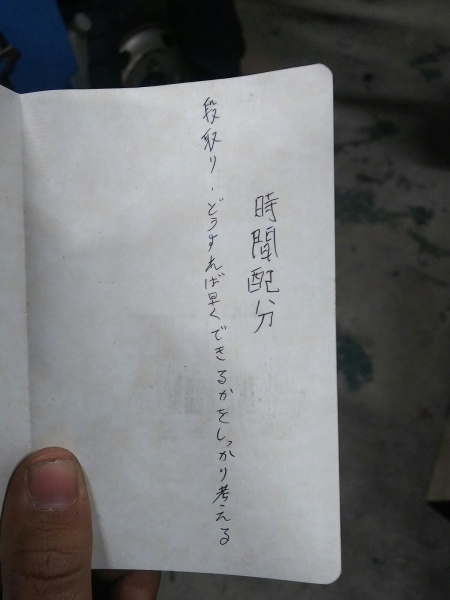 時間配分
段取り、どうすれば早くできるかをしっかり考える